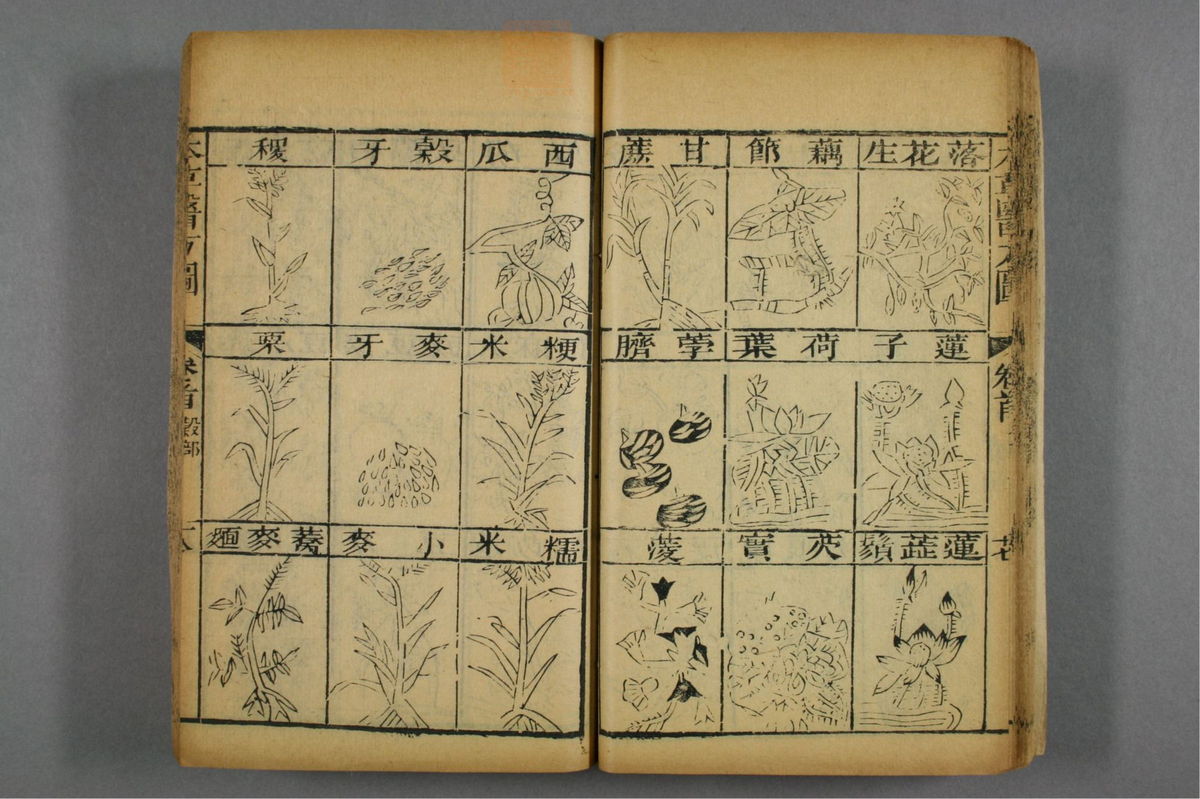 本草醫方圖
卷首
落花生
藕節
甘蔗
蓮子
荷葉
荸臍
蓮蕋鬚
芡實
菱
西瓜
穀牙
稷
粳米
麥牙
粟
糯米
小麥
蕎麥麵
本草醫方圖
卷首
穀部